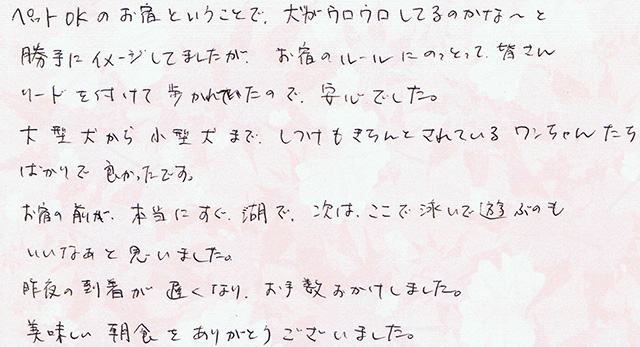 ペットOKのお宿ということで、犬がウロウロしてるのかな～と
勝手にイメージしてましたが、お宿のルールにのっとって、皆さん
リードを付けて歩かれていたので、安心でした。
大型犬から小型犬まで、しつけもきちんとされているワンちゃんたち
ばかりで良かったです。
お宿の前が、本当にすぐ、湖で、次は、ここで泳いで遊ぶのも
いいなぁと思いました。
昨夜の到着が遅くなり、お手数おかけしました。
美味しい朝食をありがとうございました。